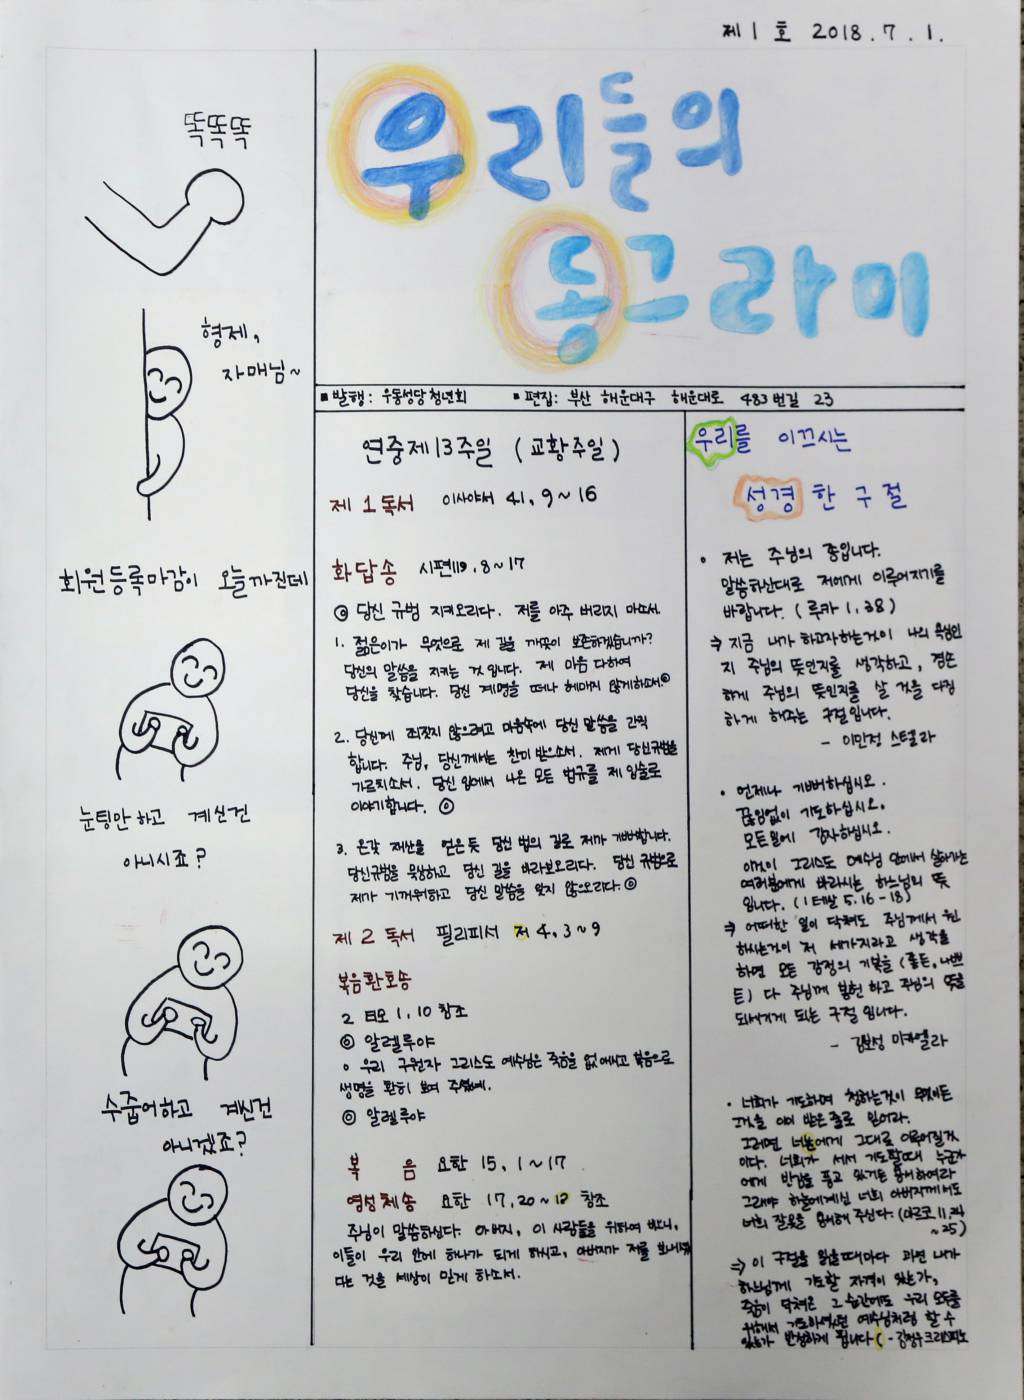 제 1 호 2018. 7. 1.
똑똑똑
형제,
자매님~
회원등록마감이 오늘까진데
눈팅만하고 계신건
아니시죠?
수줍어하고 계신건
아니겠죠?
우리들의
동그라미
▪발행: 우동성당 청년회 ▪편집: 부산 해운대구 해운대로 483번길 23
연중제13주일 (교황주일)
제 1 독서 이사야서 41, 9~16
화답송 시편119, 8~17
◎ 당신 규범 지키오리다. 저를 아주 버리지 마소서.
1. 젊은이가 무엇으로 제 길을 깨끗이 보존하겠습니까?
당신의 말씀을 지키는 것입니다. 제 마음 다하여
당신을 찾습니다. 당신 계명을 떠나 헤매지 않게하소서.◎
2. 당신께 죄짓지 않으려고 마음속에 당신 말씀을 간직
합니다. 주님, 당신께서는 찬미 받으소서. 제게 당신규범을
가르치소서. 당신 입에서 나온 모든 법규를 제 입술로
이야기합니다. ◎
3. 온갖 재산을 얻은듯 당신 법의 길로 제가 기뻐합니다.
당신규범을 묵상하고 당신 길을 바라보오리다. 당신 규범으로
제가 기꺼워하고 당신 말씀을 잊지 않으오리다.◎
제 2 독서 필리피서 저 4, 3~9
복음환호송
2 티모 1, 10 참조
◎ 알렐루야
○ 우리 구원자 그리스도 예수님은 죽음을 없애시고 복음으로
생명을 환히 보여 주셨네.
◎ 알렐루야
복 음 요한 15, 1~17
영성체송 요한 17, 20~ 참조
주님이 말씀하신다. 아버지, 이 사람들을 위하여 비니,
이들이 우리 안에 하나가 되게 하시고, 아버지가 저를 보내셨
다는 것을 세상이 믿게 하소서.
우리를 이끄시는
성경 한 구절
• 저는 주님의 종입니다.
말씀하신대로 저에게 이루어지기를
바랍니다. (루카 1, 38)
⇒ 지금 내가 하고자하는것이 나의 욕심인
지 주님의 뜻인지를 생각하고, 겸손
하게 주님의 뜻인지를 살 것을 다짐
하게 해주는 구절입니다.
- 이민정 스텔라
• 언제나 기뻐하십시오.
끊임없이 기도하십시오.
모든일에 감사하십시오.
이것이 그리스도 예수님 안에서 살아가는
여러분에게 바라시는 하느님의 뜻
입니다. (1테살 5, 16-18)
⇒ 어떠한 일이 닥쳐도 주님께서 원
하시는것이 저 세가지라고 생각을
하면 모든 감정의 기복을 (좋든, 나쁘
든) 다 주님께 봉헌 하고 주님의 뜻을
되새기게 되는 구절 입니다.
- 김보성 미카엘라
• 너희가 기도하며 청하는것이 무엇이든
그것을 이미 받은 줄로 믿어라.
그러면 너희에게 그대로 이루어질것
이다. 너희가 서서 기도할때 누군가
에게 반감을 품고 있거든 용서하여라
그래야 하늘에계신 너희 아버지께서도
너희 잘못을 용서해 주신다. (마르코 11, 24
~25)
⇒ 이 구절을 읽을때마다 과연 내가
하느님께 기도할 자격이 있는가,
죽음이 닥쳐온 그 순간에도 우리 모두를
위해서 기도하셨던 예수님처럼 할 수
있는가 반성하게 됩니다 (-김정우크리스피노